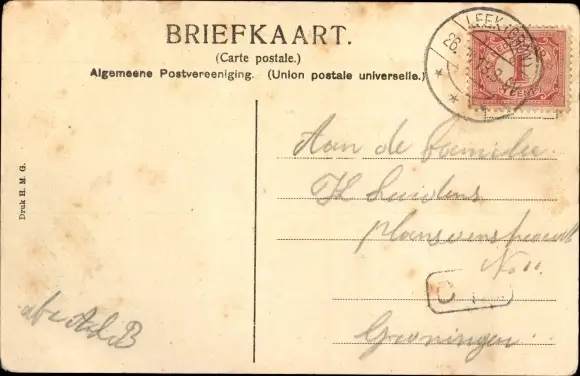 BRIEFKAART.
(Carte postale.)
Algemeene Postvereeniging. (Union postale universelle.)
LEEK (GRON)
1
CENT
Druk H. M. G.
Aan de familie
H Luidens
No 11.
Groningen